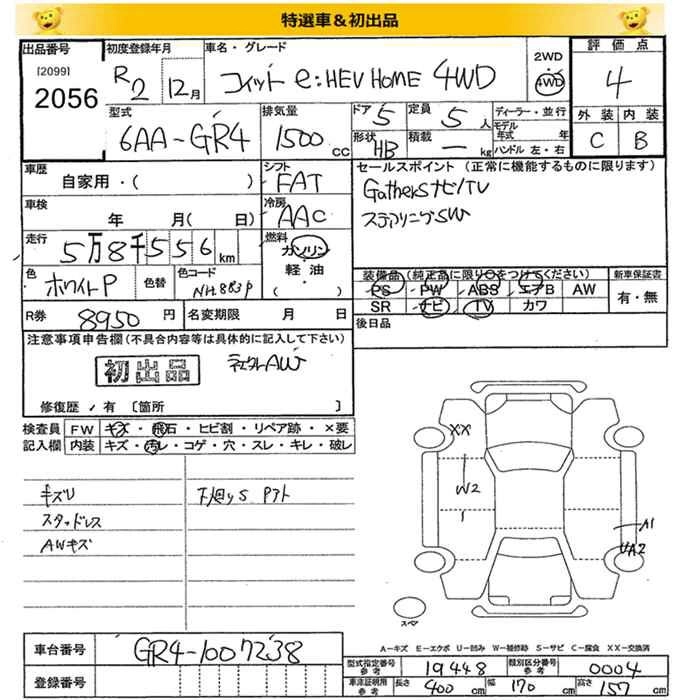 特選車&初出品
出品番号 初度登録年月 車名・グレード 評価点
[2099] 2056 R2 12月 フィット e:HEV HOME 4WD 2WD 4WD 4
型式 排気量 ドア 5 定員 5人 ディーラー・並行 外装 内装
6AA-GR4 1500cc 形状 HB 積載 ー kg モデル年式 年 ハンドル 左・右 C B
車歴 自家用・( ) シフト FAT セールスポイント (正常に機能するものに限ります)
車検 年 月( 日) 冷房 AAC Gathersナビ/TV
ステアリングSW
走行 5万8千556km 燃料 ガソリン・軽油・( )
色 ホワイトP 色替 色コード NH883P 装備品(純正品に限り○をつけてください) 新車保証書
PS PW ABS エアB AW 有・無
SR ナビ TV カワ
R券 8950円 名変期限 月 日 後日品
注意事項申告欄(不具合内容等は具体的に記入して下さい)
初出品 AW
修復歴 / 有 [箇所 ]
検査員 FW キズ・飛石・ヒビ割・リペア跡・×要
記入欄 内装 キズ・汚レ・コゲ・穴・スレ・キレ・破レ
XX
キズU 下廻りS Pアト W2
スタッドレス 1 A1
AWキズ UA2
スペア
A-キズ E-エクボ U-凹み W-補修跡 S-サビ C-腐食 XX-交換済
車台番号 GR4-1007238 型式指定番号 参考 19448 類別区分番号 参考 0004
登録番号 車庫証明用 参考 長さ 400cm 幅 170cm 高さ 157cm